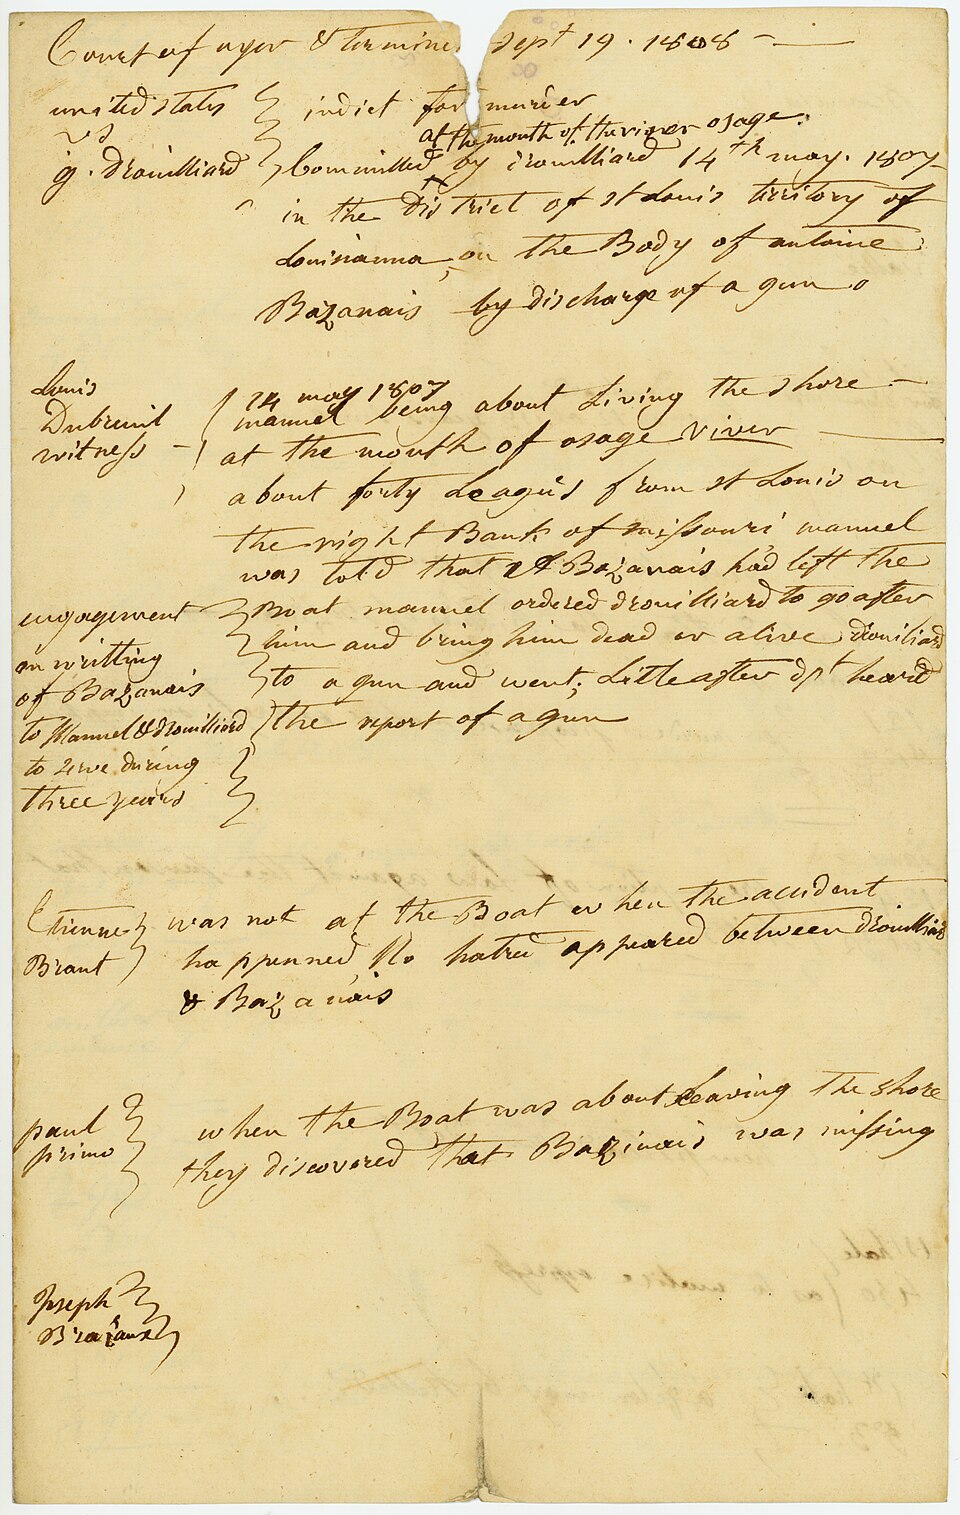 Court of oyer & termine Sept 19. 1808 -
united states
vs
g. Drouilliard
indict for murder
at the mouth of the river osage.
Committed by Drouilliard 14th may. 1807
in the District of st Louis territory of
Louisianna, on the Body of antoine
Bazanais by discharge of a gun
Louis
Dubreuil
witness -
14 may 1807
manuel being about Living the shore -
at the mouth of osage river
about forty Leagues from st Louis on
the right Bank of missouri manuel
was told that A Bazanais had left the
Boat manuel ordered drouilliard to go after
him and bring him dead or alive Drouiliard
to a gun and went; Little after dpt heard
the report of a gun
engagement
in writting
of Bazanais
to Manuel & drouilliard
to serve during
three years
Etienne
Brant
was not at the Boat when the accident
happenned, No hatred appeared between drouilliard
& Bazanais
paul
primo
when the Boat was about Leaving the shore
they discovered that Bazinais was missing
Joseph